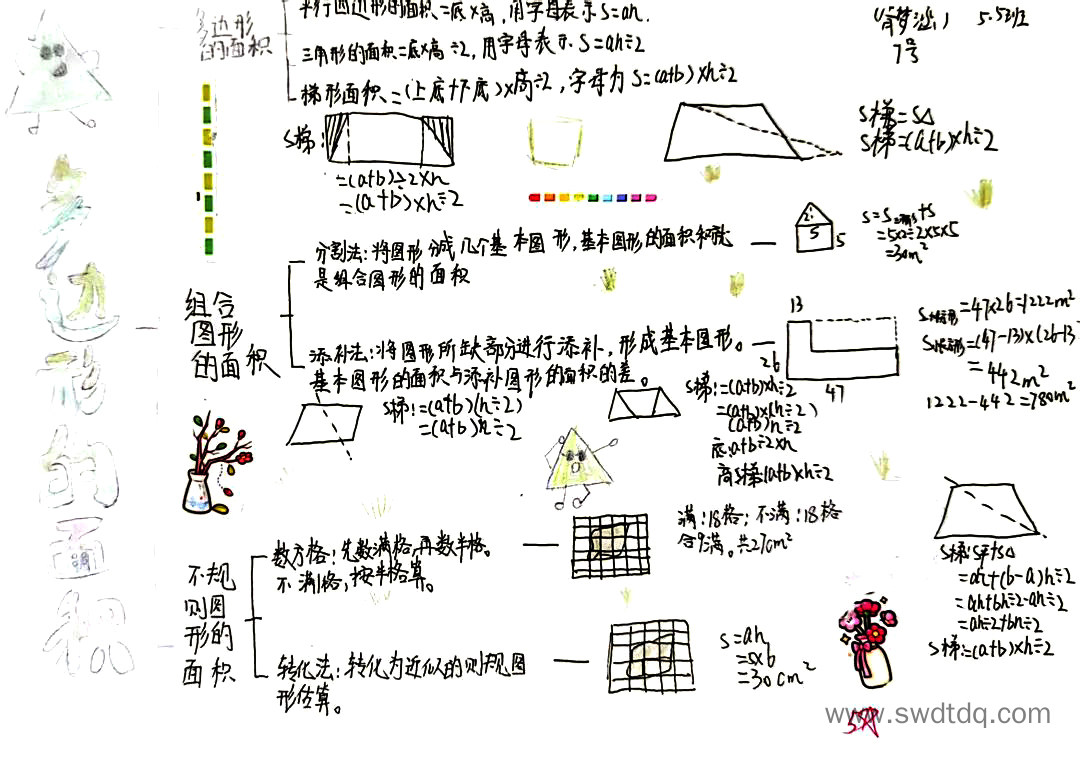 多边形的面积
多边形
的面积
平行四边形的面积=底×高,用字母表示S=ah.
三角形的面积=底×高÷2,用字母表示S=ah÷2
梯形面积=(上底+下底)×高÷2,字母为S=(a+b)×h÷2
5.5班
7号
S梯:
=(a+b)÷2×h
=(a+b)×h÷2
S梯=S△
S梯=(a+b)×h÷2
组合
图形
的面积
分割法:将图形分成几个基本图形,基本图形的面积和就
是组合图形的面积
2
5
5
=5×2÷2+5×5
=30m²
添补法:将图形所缺部分进行添补,形成基本图形。
基本图形的面积与添补图形的面积的差。
13
26
47
=47×26=1222m²
=(47-13)×(26-13
=442m²
1222-442=780m²
S梯:=(a+b)(h÷2)
=(a+b)h÷2
S梯:=(a+b)×h÷2
=(a+b)×(h÷2)
(a+b)h÷2
底:a+b÷2×h
高S梯:(a+b)×h÷2
不规
则图
形的
面积
数方格:先数满格,再数半格。
不满格,按半格算。
满:18格;不满:18格
合9满。共27cm²
转化法:转化为近似的则规图
形估算。
S=ah
=5×6
=30cm²
=ah+(b-a)h÷2
=ah+bh÷2-ah÷2
=ah÷2+bh÷2
S梯:=(a+b)×h÷2
www.swdtdq.com